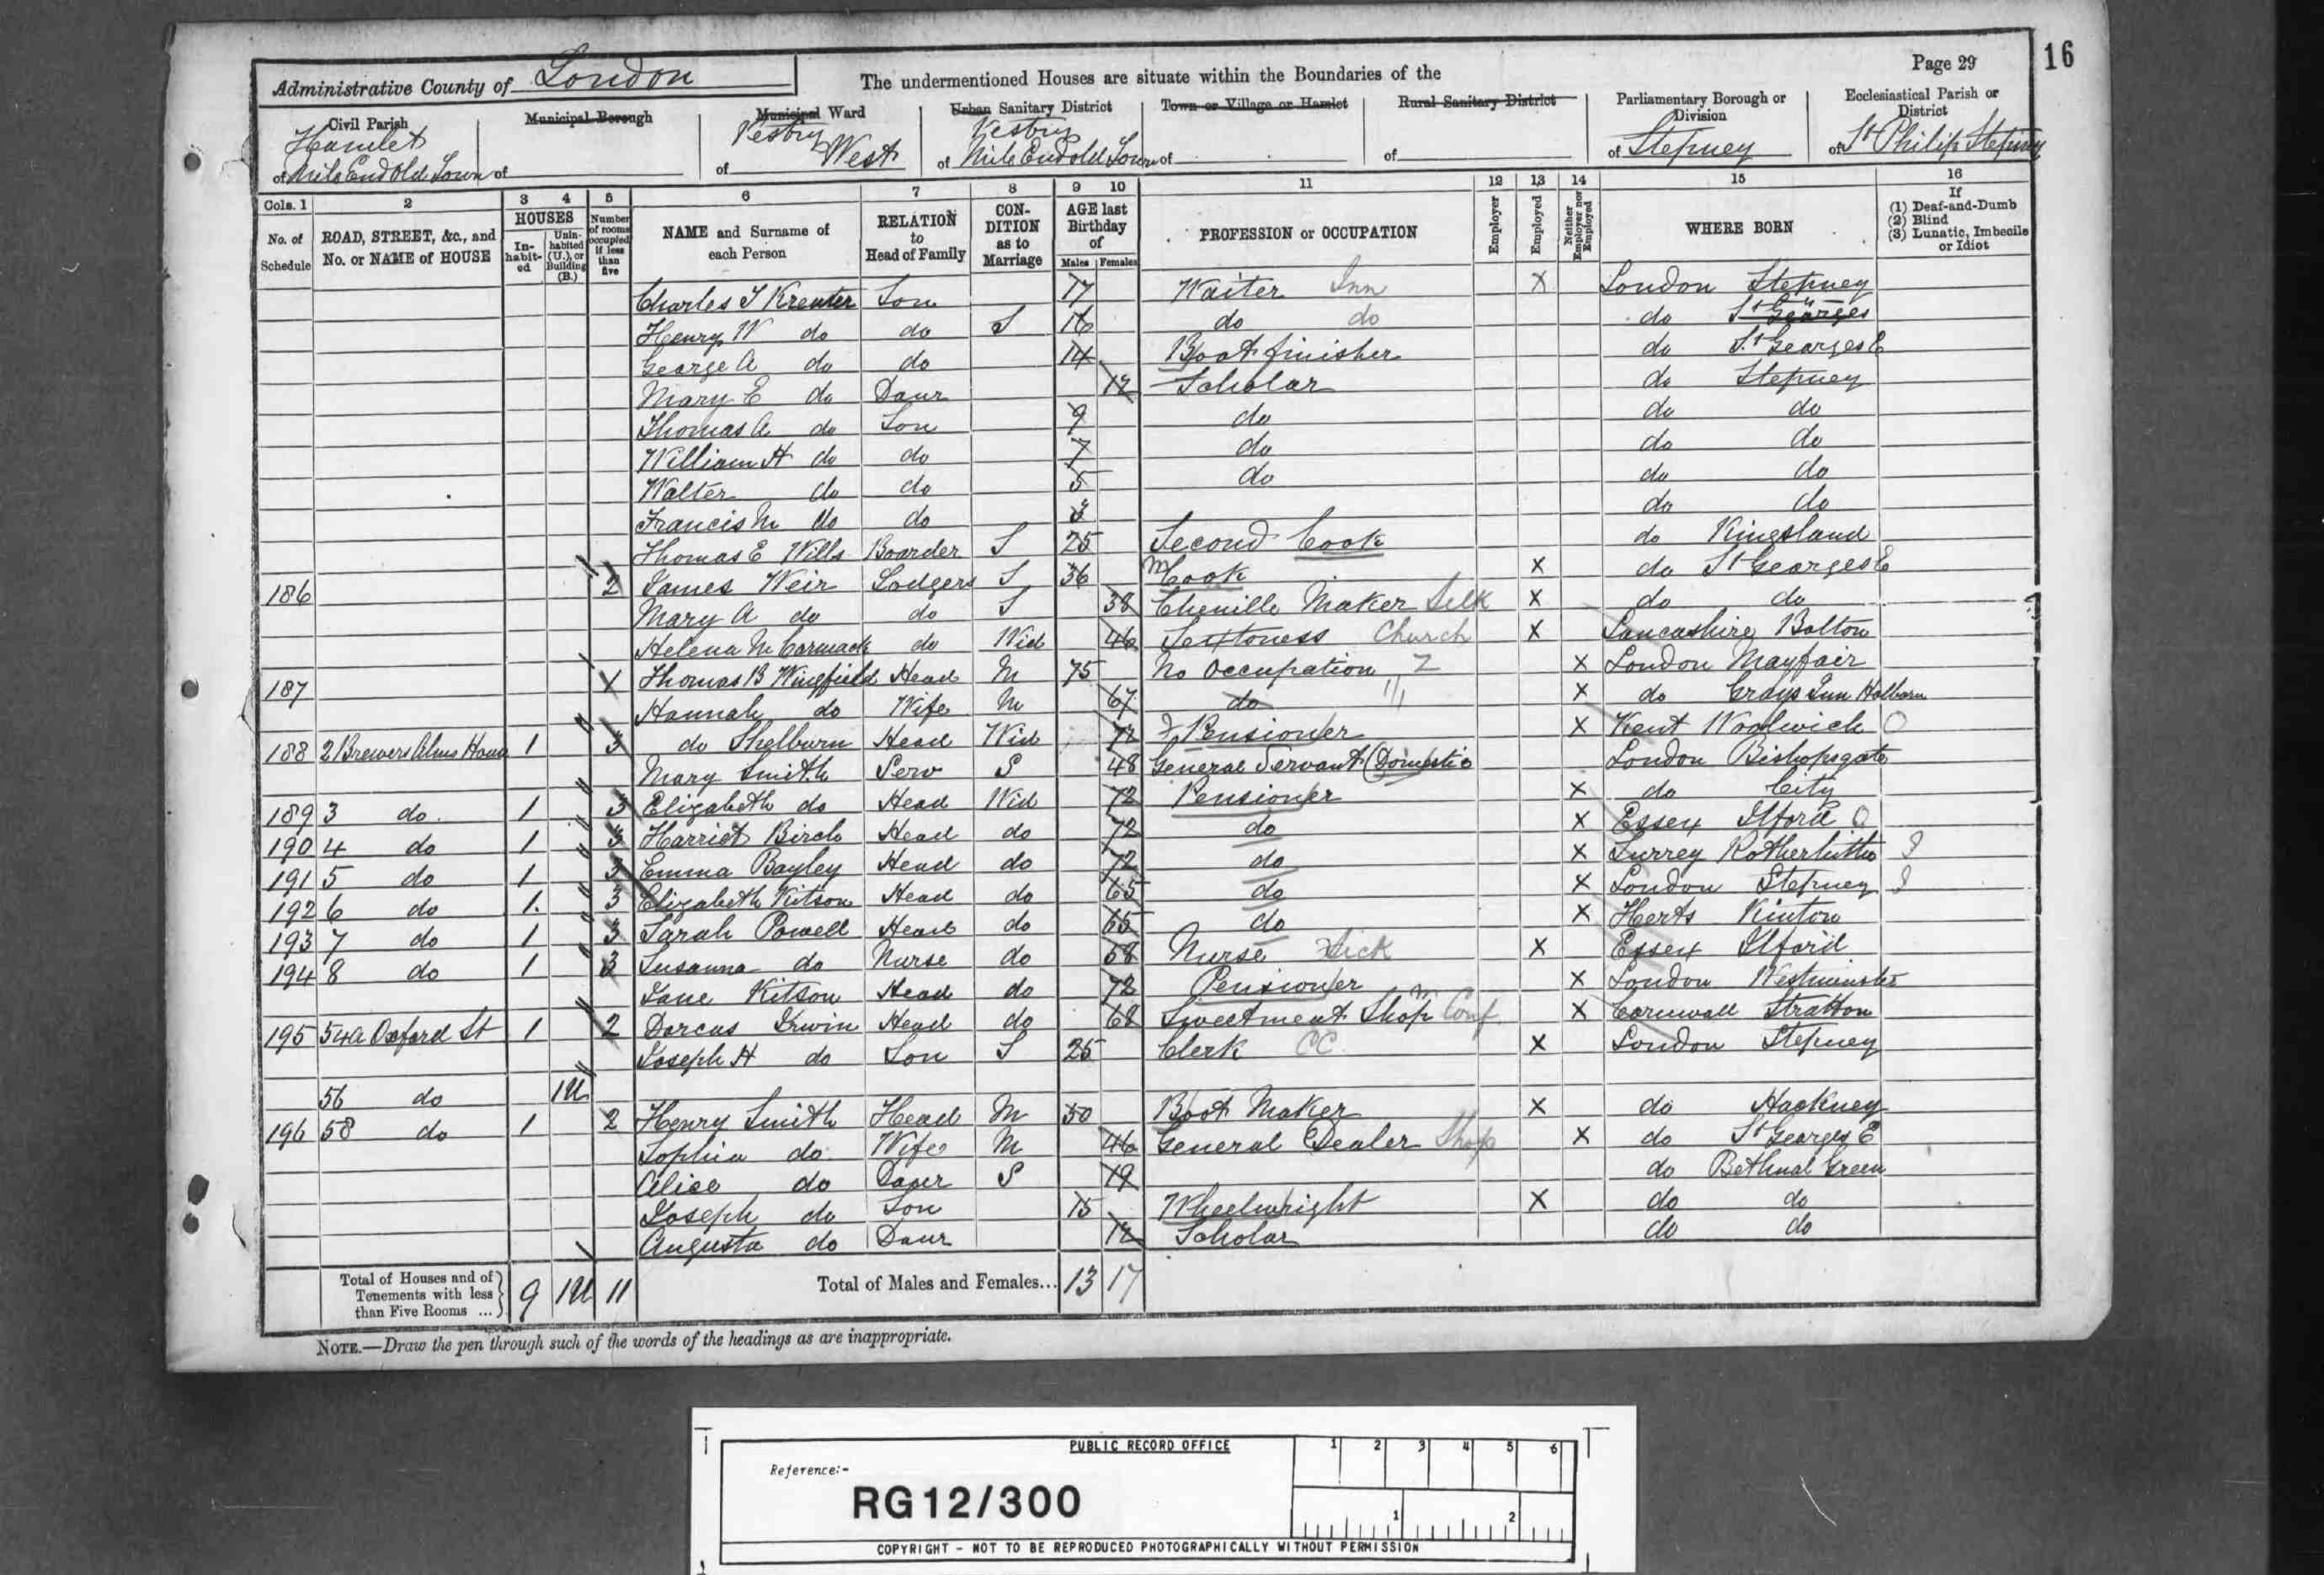 16
Administrative County of London
The undermentioned Houses are situate within the Boundaries of the
Page 29
Civil Parish
Municipal Borough
Municipal Ward
Urban Sanitary District
Town or Village or Hamlet
Rural Sanitary District
Parliamentary Borough or Division
Ecclesiastical Parish or District
Hamlet of Mile End Old Town
of
of Vestry West
of Vestry Mile End Old Town
of
of
of Stepney
of St Philip Stepney
Cols. 1 2 3 4 5 6 7 8 9 10 11 12 13 14 15 16
No. of Schedule
ROAD, STREET, &c., and No. or NAME of HOUSE
HOUSES
In-habit-ed
Unin-habited (U.), or Building (B.)
Number of rooms occupied if less than five
NAME and Surname of each Person
RELATION to Head of Family
CON-DITION as to Marriage
AGE last Birthday of
Males Females
PROFESSION or OCCUPATION
Employer
Employed
Neither Employer nor Employed
WHERE BORN
If
(1) Deaf-and-Dumb
(2) Blind
(3) Lunatic, Imbecile or Idiot
Charles J Kreuter Son 17 Waiter Inn X London Stepney
Henry W do do S 16 do do do St Georges
George A do do 14 Boot finisher do St Georges E
Mary E do Daur 12 Scholar do Stepney
Thomas A do Son 9 do do do
William H do do 7 do do do
Walter do do 5 do do do
Francis M do do 3 do do
Thomas E Wills Boarder S 25 Second Cook do Kingsland
186 2 James Weir Lodgers S 36 Cook X do St Georges E
Mary A do do S 38 Chenille Maker Silk X do do
Helena McCormack do Wid 46 Sextoness Church X Lancashire Bolton
187 1 Thomas B Wingfield Head M 75 No Occupation X London Mayfair
Hannah do Wife M 67 do X do Grays Inn Holborn
188 2 Brewers Alms House 1 3 do Shelburn Head Wid 72 Pensioner X Kent Woolwich
Mary Smith Serv S 48 General Servant (Domestic London Bishopsgate
189 3 do 1 3 Elizabeth do Head Wid 72 Pensioner X do City
190 4 do 1 3 Harriet Birch Head do 72 do X Essex Ilford
191 5 do 1 3 Emma Bayley Head do 72 do X Surrey Rotherhithe
192 6 do 1 3 Elizabeth Kitson Head do 65 do X London Stepney
193 7 do 1 3 Sarah Powell Head do 65 do X Herts
194 8 do 1 3 Susanna do Nurse do 58 Nurse Sick X Essex Ilford
Jane Kitson Head do 72 Pensioner X London Westminster
195 54a Oxford St 1 2 Dorcas Irwin Head do 68 Sweetmeat Shop Conf X Cornwall Stratton
Joseph H do Son S 25 Clerk CC X London Stepney
56 do 1U
196 58 do 1 2 Henry Smith Head M 50 Boot Maker X do Hackney
Sophia do Wife M 46 General Dealer Shop X do St Georges E
Alice do Daur S 19 do Bethnal Green
Joseph do Son 15 Wheelwright X do do
Augusta do Daur 12 Scholar do do
Total of Houses and of Tenements with less than Five Rooms ... 9 1U 11
Total of Males and Females... 13 17
NOTE.—Draw the pen through such of the words of the headings as are inappropriate.
PUBLIC RECORD OFFICE
1 2 3 4 5 6
Reference:-
RG 12/300
1 2
COPYRIGHT - NOT TO BE REPRODUCED PHOTOGRAPHICALLY WITHOUT PERMISSION